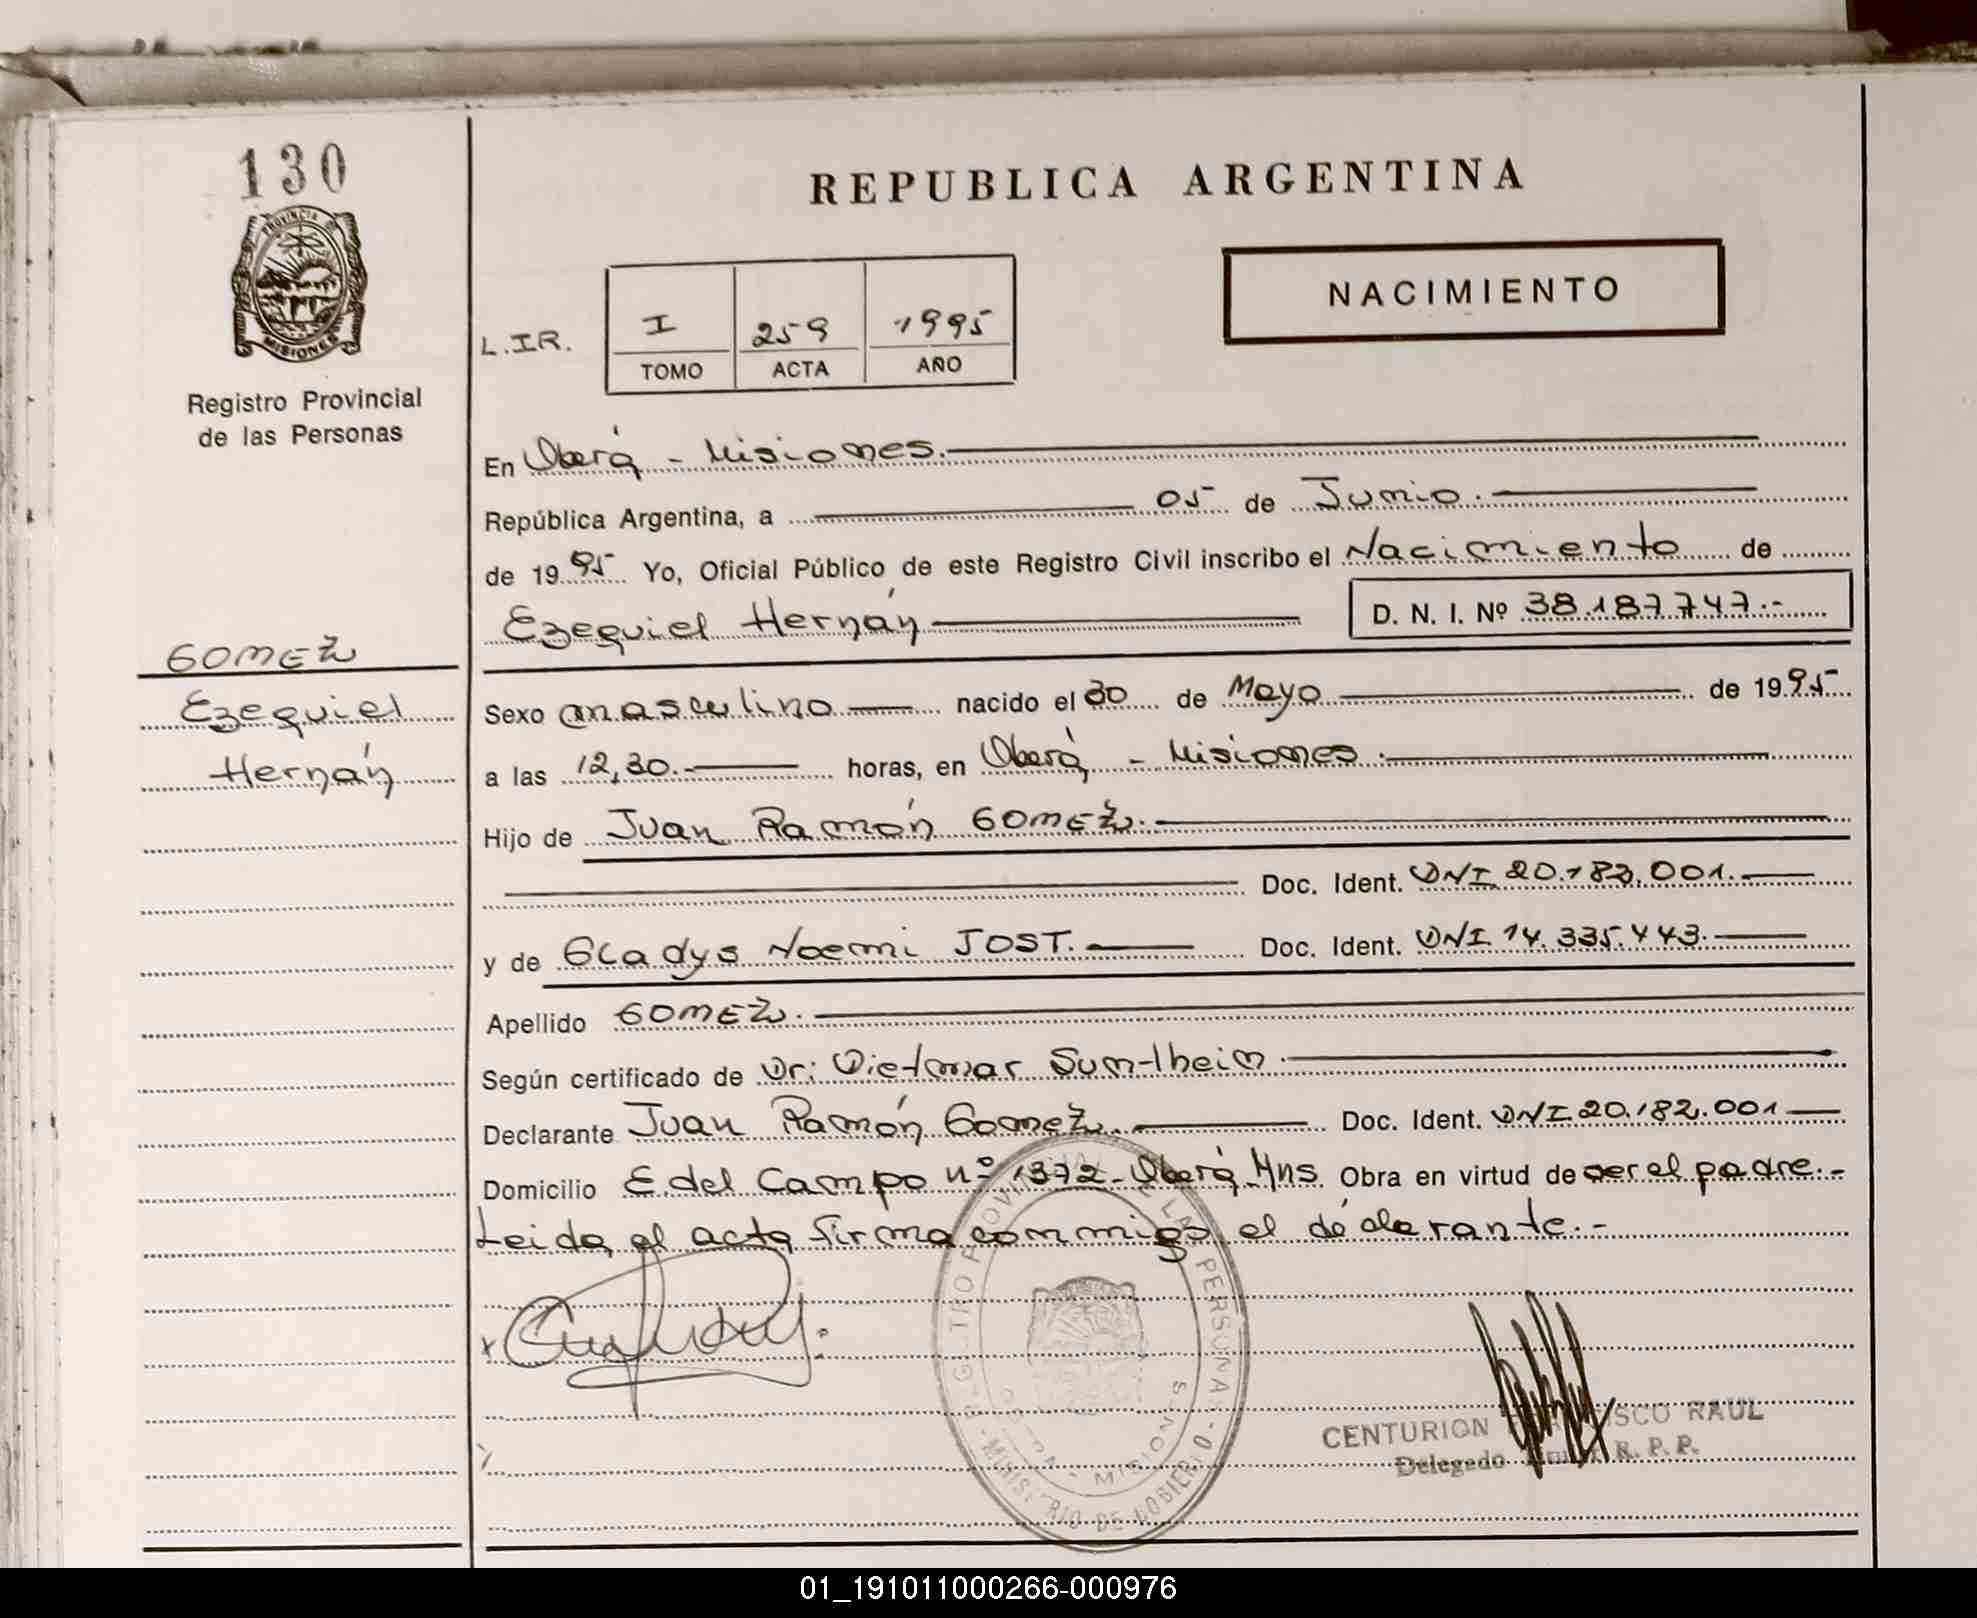 130
PROVINCIA DE
MISIONES
Registro Provincial
de las Personas
REPUBLICA ARGENTINA
NACIMIENTO
L.I.R. I 259 1995
TOMO ACTA AÑO
En Oberá - Misiones.
República Argentina, a 05 de Junio.
de 1995 Yo, Oficial Público de este Registro Civil inscribo el Nacimiento de
Ezequiel Hernán D. N. I. Nº 38.187.747.-
GOMEZ
Ezequiel
Hernán
Sexo masculino nacido el 30 de Mayo de 1995
a las 12,30.- horas, en Oberá - Misiones.
Hijo de Juan Ramón GOMEZ.
Doc. Ident. DNI 20.182.001.
y de Gladys Noemi JOST. Doc. Ident. DNI 14.335.443.
Apellido GOMEZ.
Según certificado de Dr: Dietmar Sumtheim.
Declarante Juan Ramón Gomez. Doc. Ident. DNI 20.182.001
Domicilio E. del Campo nº 1372- Oberá-Mns. Obra en virtud de ser el padre.-
Leida el acta firma conmigo el declarante.-
REGISTRO PROVINCIAL DE LAS PERSONAS
MINISTERIO DE GOBIERNO
MISIONES
CENTURION FRANCISCO RAUL
Delegado R. P. P.
01_191011000266-000976